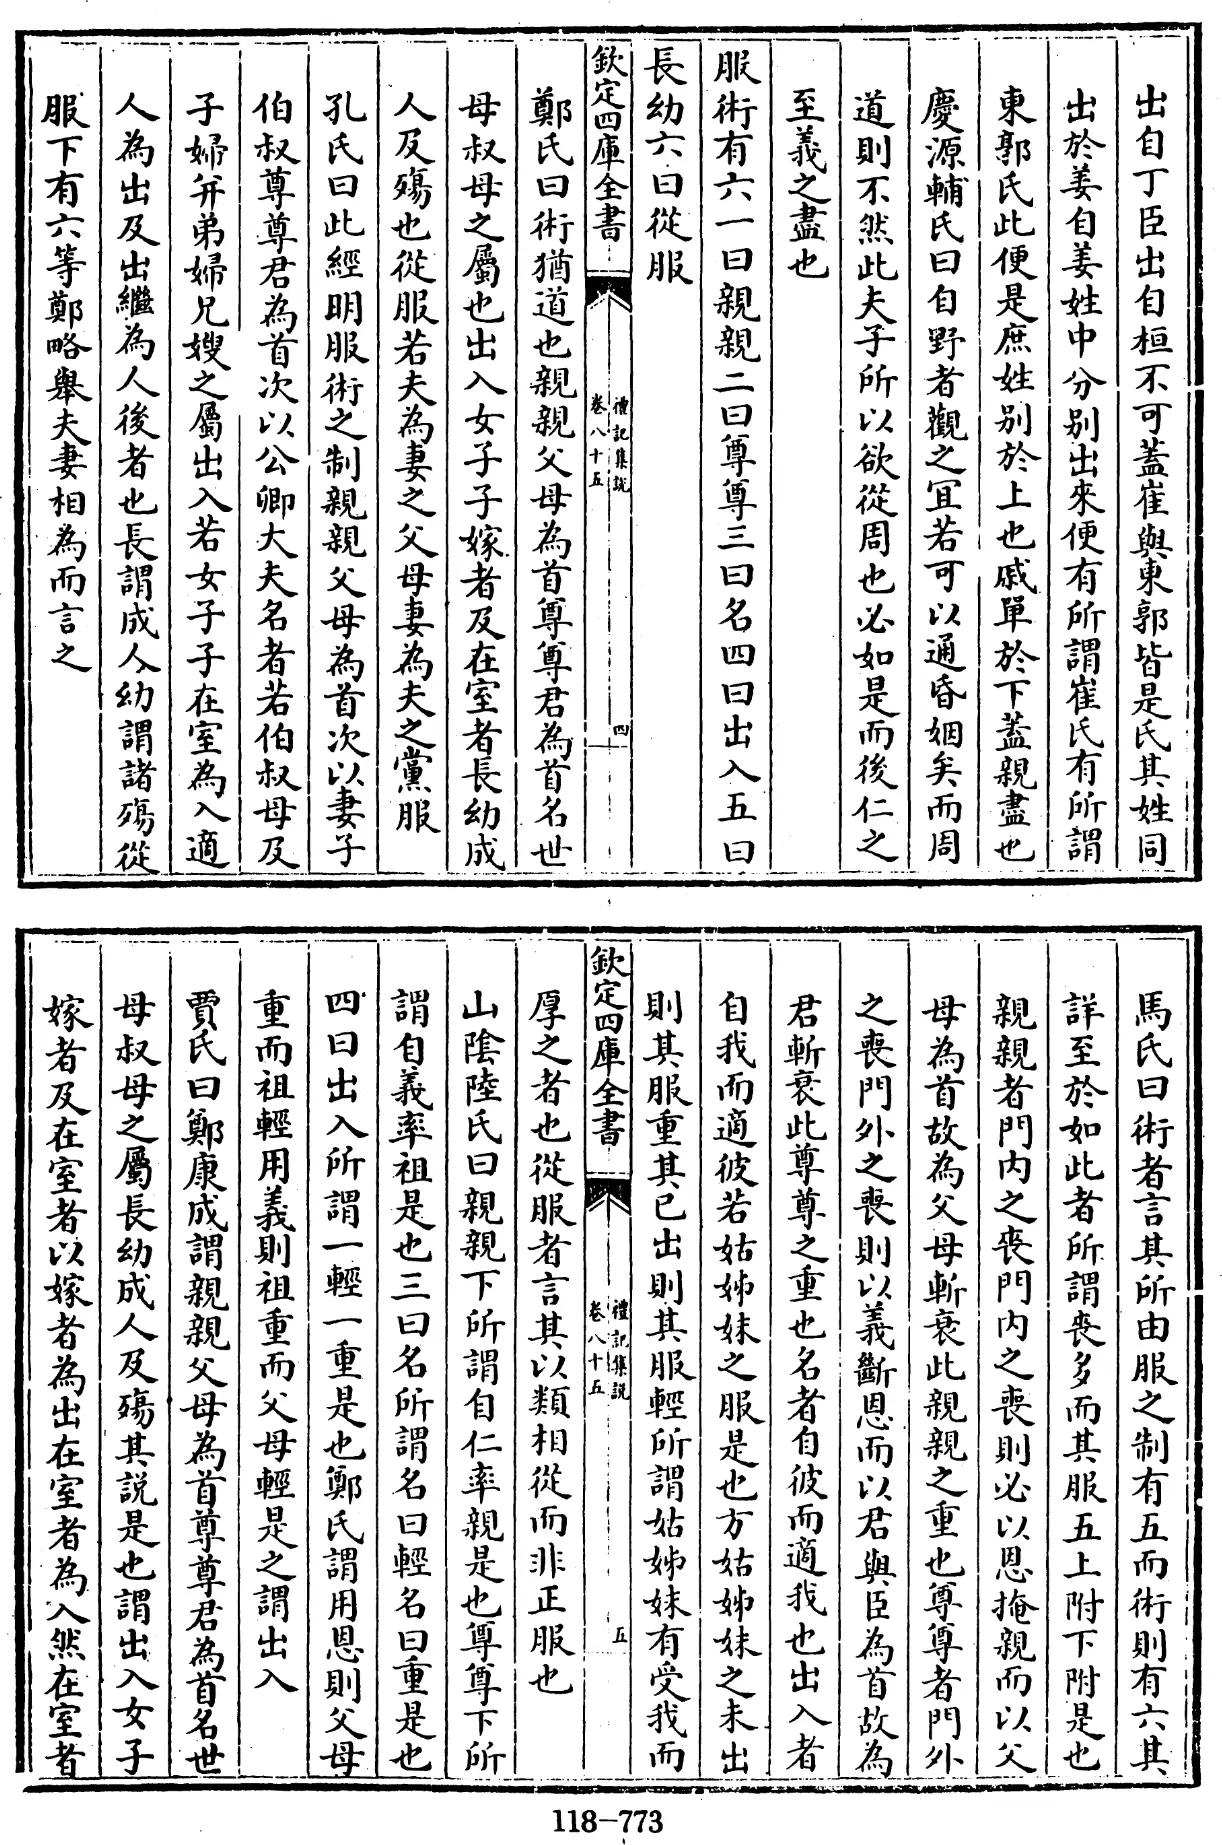 出自丁臣出自桓不可蓋崔與東郭皆是氏其姓同
出於姜自姜姓中分别出來便有所謂崔氏有所謂
東郭氏此便是庶姓别於上也戚單於下蓋親盡也
慶源輔氏曰自野者觀之宜若可以通昏姻矣而周
道則不然此夫子所以欲從周也必如是而後仁之
至義之盡也
服術有六一曰親親二曰尊尊三曰名四曰出入五曰
長幼六曰從服
欽定四庫全書
禮記集說
卷八十五
四
鄭氏曰術猶道也親親父母為首尊尊君為首名世
母叔母之屬也出入女子子嫁者及在室者長幼成
人及殤也從服若夫為妻之父母妻為夫之黨服
孔氏曰此經明服術之制親親父母為首次以妻子
伯叔尊尊君為首次以公卿大夫名者若伯叔母及
子婦弁弟婦兄嫂之屬出入若女子子在室為入適
人為出及出繼為人後者也長謂成人幼謂諸殤從
服下有六等鄭略舉夫妻相為而言之
馬氏曰術者言其所由服之制有五而術則有六其
詳至於如此者所謂喪多而其服五上附下附是也
親親者門内之喪門内之喪則必以恩掩親而以父
母為首故為父母斬衰此親親之重也尊尊者門外
之喪門外之喪則以義斷恩而以君與臣為首故為
君斬衰此尊尊之重也名者自彼而適我也出入者
自我而適彼若姑姊妹之服是也方姑姊妹之未出
則其服重其已出則其服輕所謂姑姊妹有受我而
欽定四庫全書
禮記集說
卷八十五
五
厚之者也從服者言其以類相從而非正服也
山陰陸氏曰親親下所謂自仁率親是也尊尊下所
謂自義率祖是也三曰名所謂名曰輕名曰重是也
四曰出入所謂一輕一重是也鄭氏謂用恩則父母
重而祖輕用義則祖重而父母輕是之謂出入
賈氏曰鄭康成謂親親父母為首尊尊君為首名世
母叔母之屬長幼成人及殤其說是也謂出入女子
嫁者及在室者以嫁者為出在室者為入然在室者
118-773